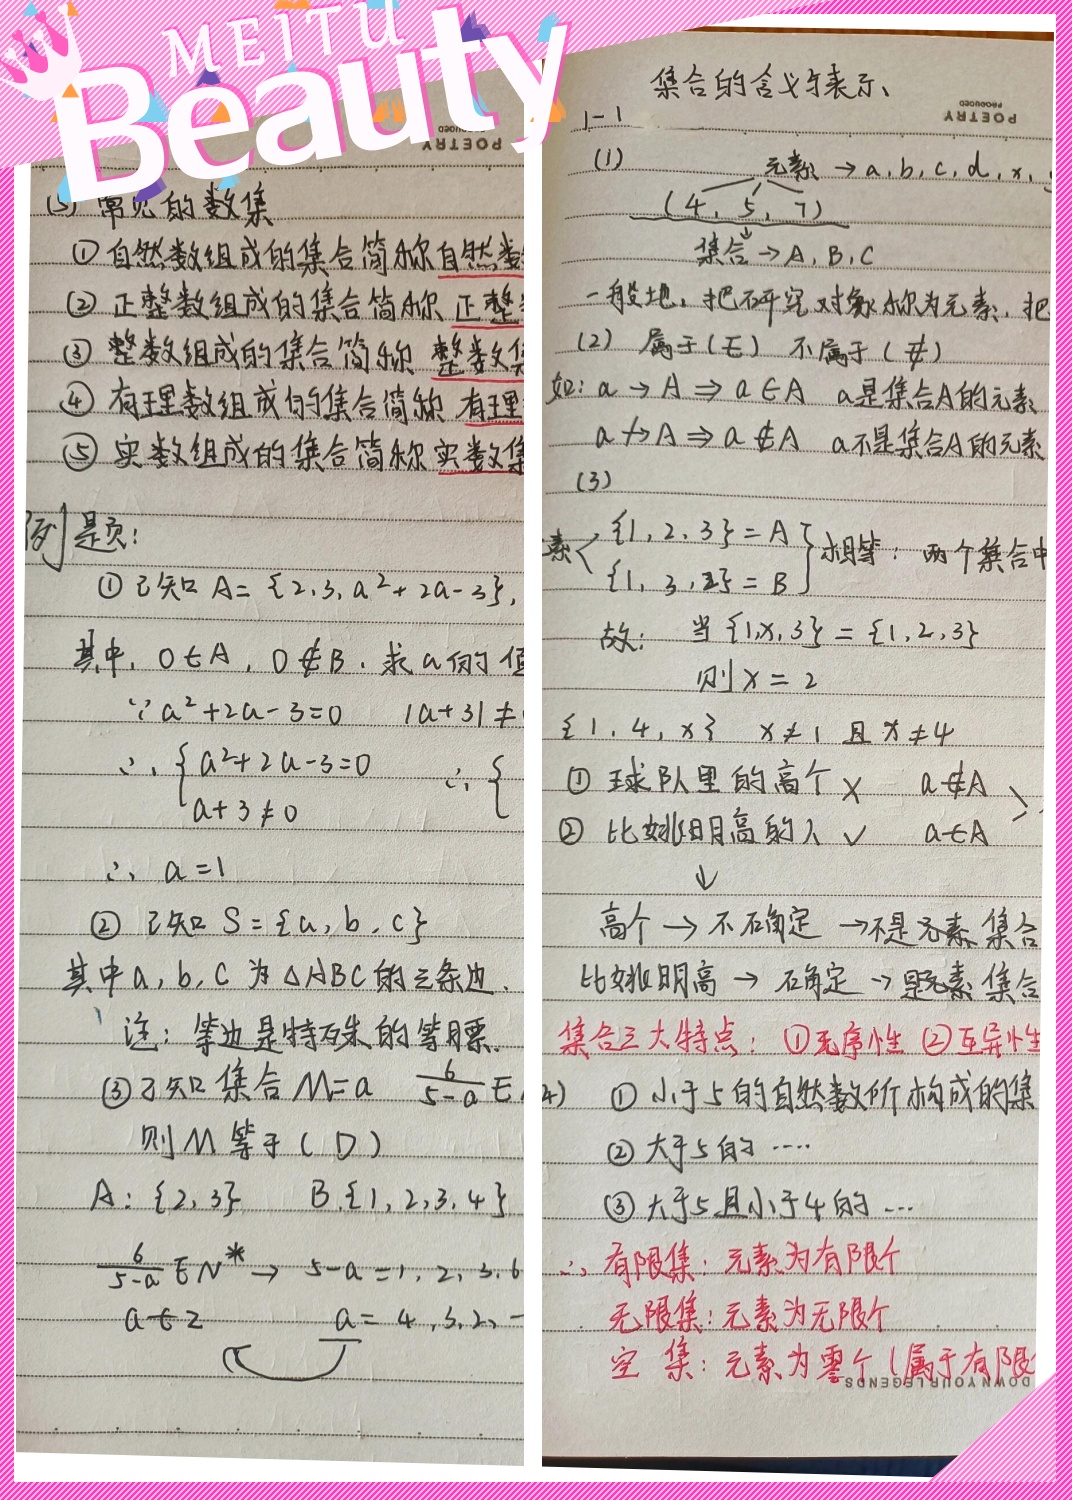 MEITU
Beauty
POETRY
PRODUCED
(5) 常见的数集
① 自然数组成的集合简称自然数
② 正整数组成的集合简称 正整
③ 整数组成的集合简称 整数集
④ 有理数组成的集合简称 有理
⑤ 实数组成的集合简称 实数集
例题:
① 已知 A= {2,3,a²+2a-3},
其中, 0∈A, 0∉B, 求a的值
∵ a²+2a-3=0 |a+3|≠
∴ { a²+2a-3=0 ∴ {
a+3≠0
∴ a=1
② 已知 S={a, b, c}
其中 a, b, c 为△ABC的三条边.
注: 等边是特殊的等腰.
③ 已知集合 M=a 6/(5-a) ∈
则 M 等于 ( D )
A: {2,3} B.{1,2,3,4}
6/(5-a) ∈N* → 5-a=1, 2, 3, 6
a∈Z a= 4, 3, 2, -
集合的含义与表示
POETRY
PRODUCED
1-1
(1) 元素 → a, b, c, d, x,
(4, 5, 7)
集合 → A, B, C
一般地, 把研究对象称为元素, 把
(2) 属于(∈) 不属于 (∉)
如: a → A ⇒ a∈A a是集合A的元素
a ↛ A ⇒ a∉A a不是集合A的元素
(3)
素< {1, 2, 3} = A } 相等: 两个集合中
{1, 3, 2} = B
故: 当 {1,x,3} = {1,2,3}
则 x = 2
{1, 4, x} x≠1 且 x≠4
① 球队里的高个 × a∉A
② 比姚明高的人 ✓ a∈A
↓
高个 → 不确定 → 不是元素 集合
比姚明高 → 确定 → 是元素 集合
集合三大特点: ①无序性 ②互异性
4) ① 小于5的自然数所构成的集
② 大于5的 ····
③ 大于5且小于4的 ...
∴ 有限集: 元素为有限个
无限集: 元素为无限个
空 集: 元素为零个 (属于有限
DOWN YOUR LEGENDS